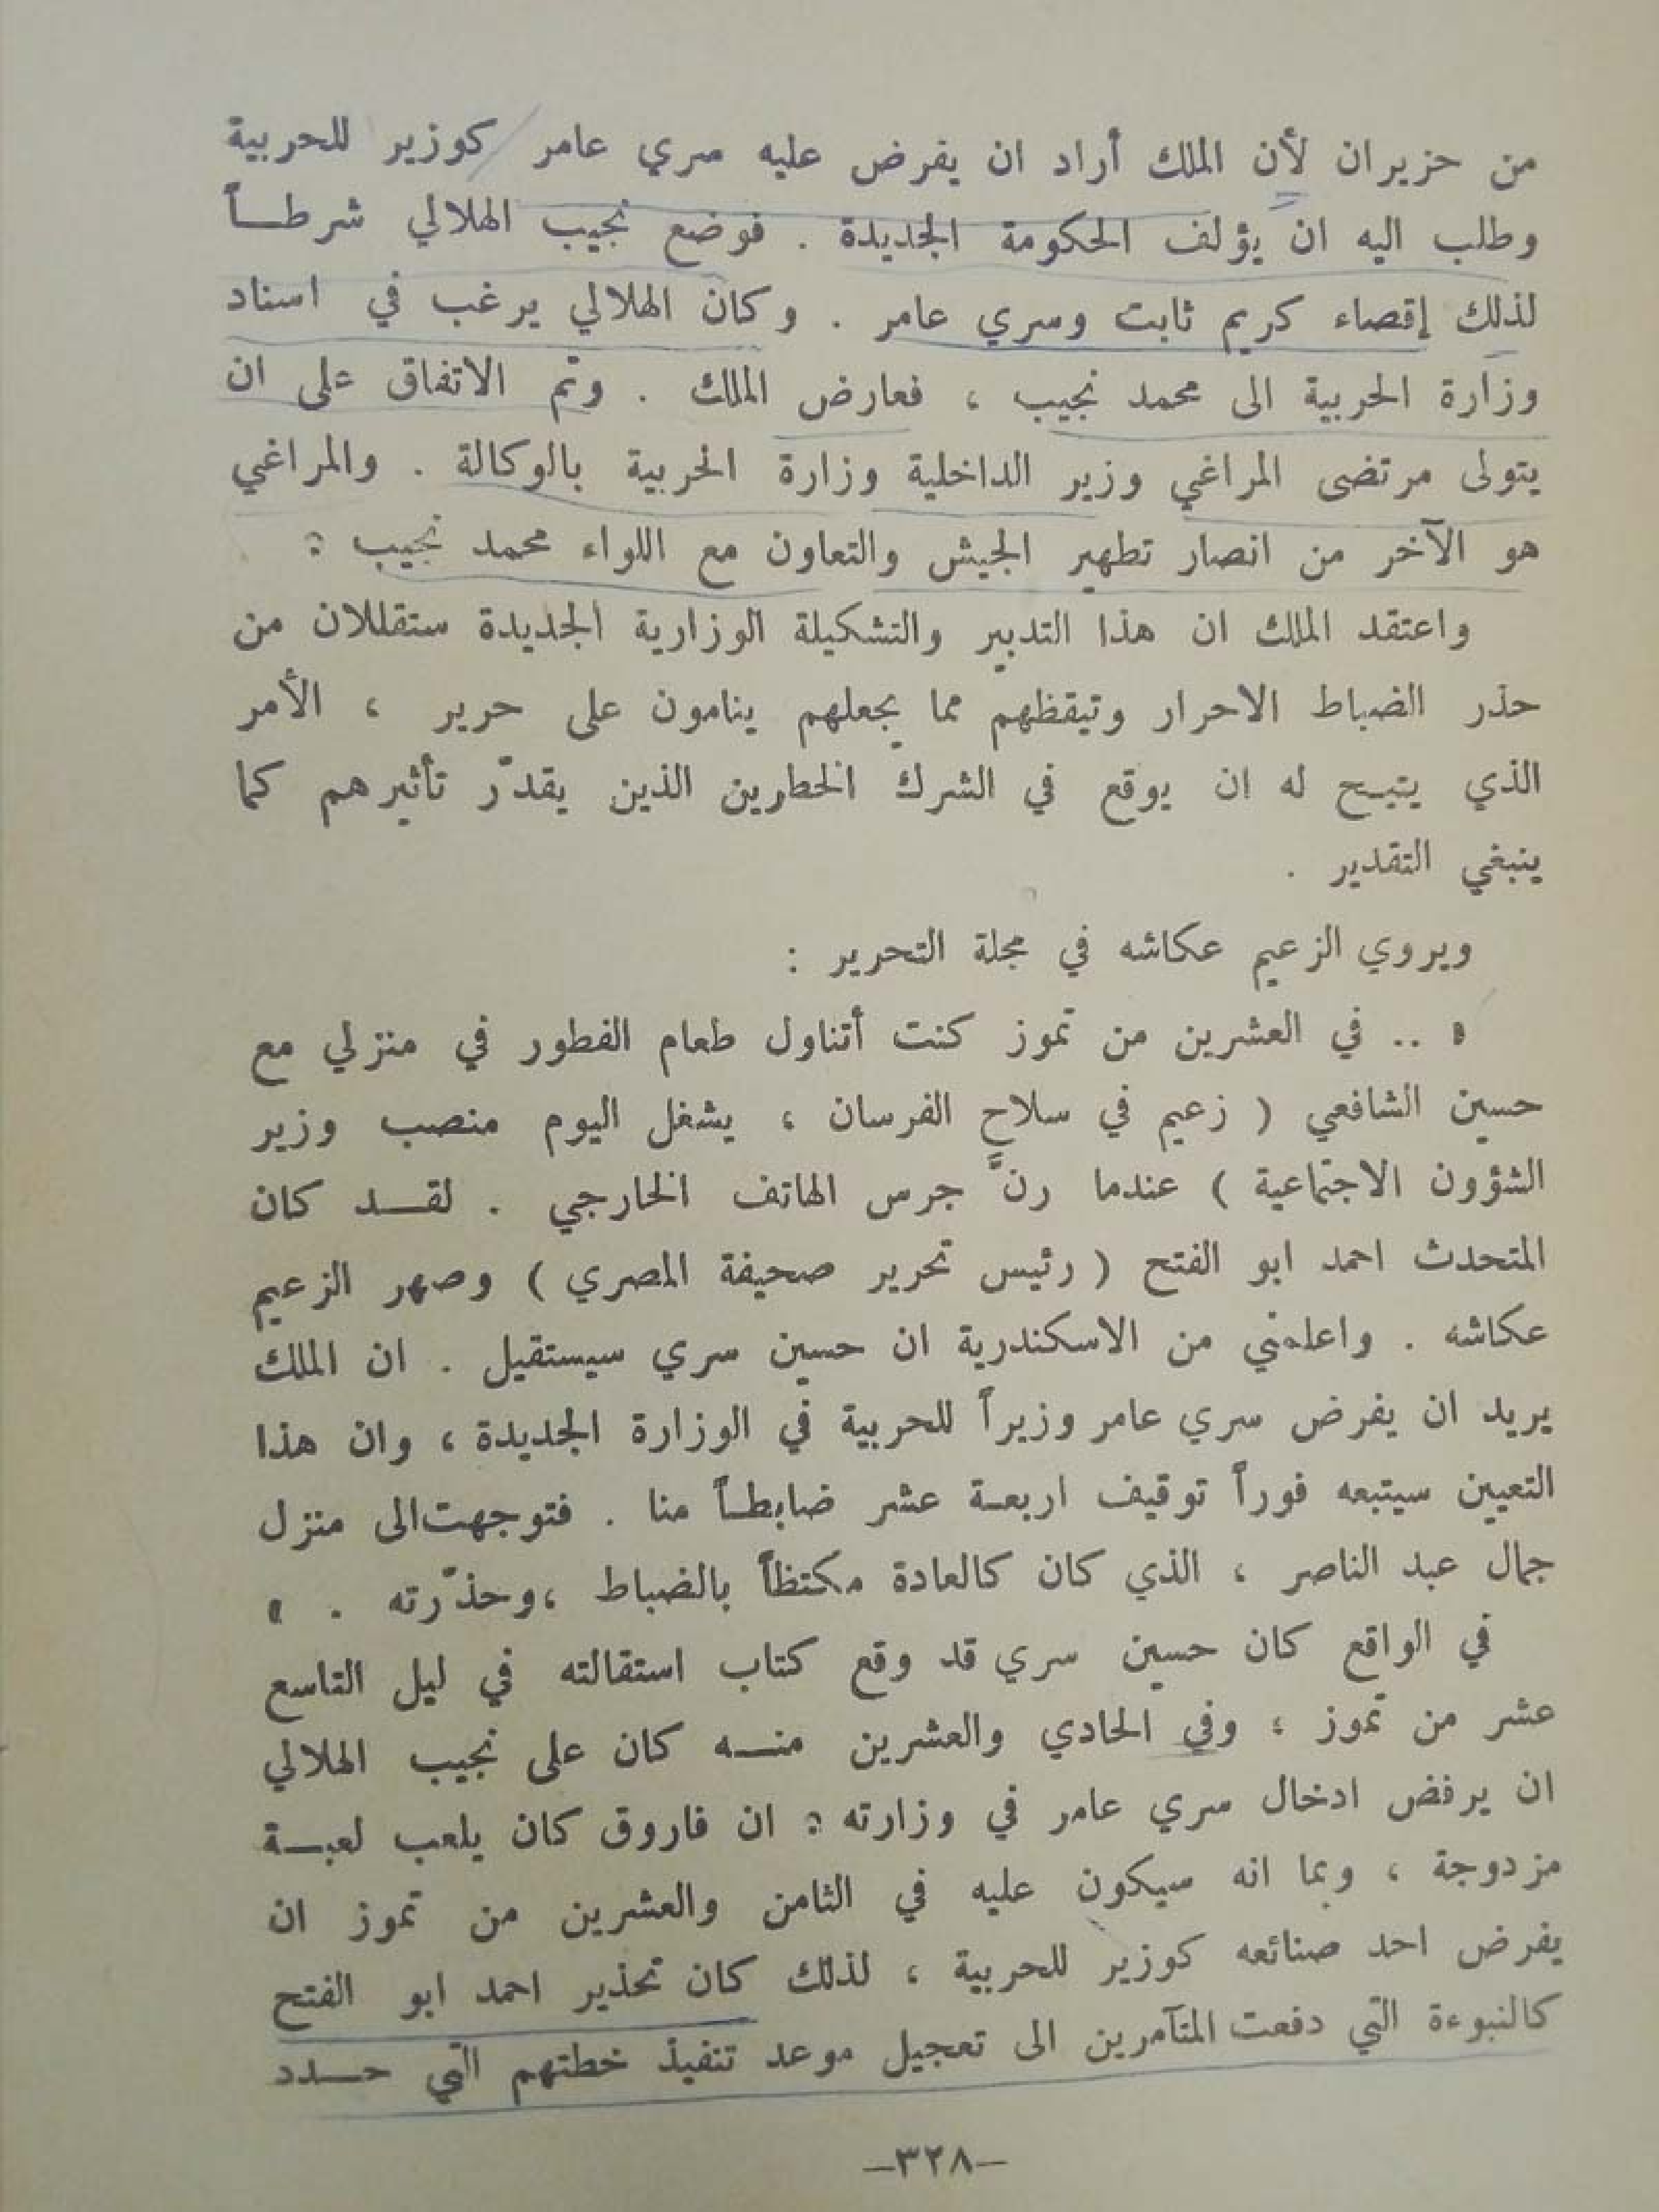 من حزيران لأن الملك أراد ان يفرض عليه سري عامر كوزير للحربية
وطلب اليه ان يؤلف الحكومة الجديدة . فوضع نجيب الهلالي شرطـــاً
لذلك إقصاء كريم ثابت وسري عامر . وكان الهلالي يرغب في اسناد
وزارة الحربية الى محمد نجيب ، فعارض الملك . وتم الاتفاق على ان
يتولى مرتضى المراغي وزير الداخلية وزارة الحربية بالوكالة . والمراغي
هو الآخر من انصار تطهير الجيش والتعاون مع اللواء محمد نجيب :
واعتقد الملك ان هذا التدبير والتشكيلة الوزارية الجديدة ستقللان من
حذر الضباط الاحرار وتيقظهم مما يجعلهم ينامون على حرير ، الأمر
الذي يتيـح له ان يوقع في الشرك الخطارين الذين يقدّر تأثيرهم كما
ينبغي التقدير .
ويروي الزعيم عكاشه في مجلة التحرير :
« .. في العشرين من تموز كنت أتناول طعام الفطور في منزلي مع
حسين الشافعي ( زعيم في سلاح الفرسان ، يشغل اليوم منصب وزير
الشؤون الاجتماعية ) عندما رنَّ جرس الهاتف الخارجي . لقـــد كان
المتحدث احمد ابو الفتح ( رئيس تحرير صحيفة المصري ) وصهر الزعيم
عكاشه . واعلمني من الاسكندرية ان حسين سري سيستقيل . ان الملك
يريد ان يفرض سري عامر وزيراً للحربية في الوزارة الجديدة ، وان هذا
التعيين سيتبعه فوراً توقيف اربعـة عشر ضابطـاً منا . فتوجهت الى منزل
جمال عبد الناصر ، الذي كان كالعادة مكتظاً بالضباط ، وحذّرته . »
في الواقع كان حسين سري قد وقع كتاب استقالته في ليل التاسع
عشر من تموز ؛ وفي الحادي والعشرين منـــه كان على نجيب الهلالي
ان يرفض ادخال سري عامر في وزارته : ان فاروق كان يلعب لعبـــة
مزدوجة ، وبما انه سيكون عليه في الثامن والعشرين من تموز ان
يفرض احد صنائعه كوزير للحربية ، لذلك كان تحذير احمد ابو الفتح
كالنبوءة التي دفعت المتآمرين الى تعجيل موعد تنفيذ خطتهم التي حـــدد
—٣٢٨—